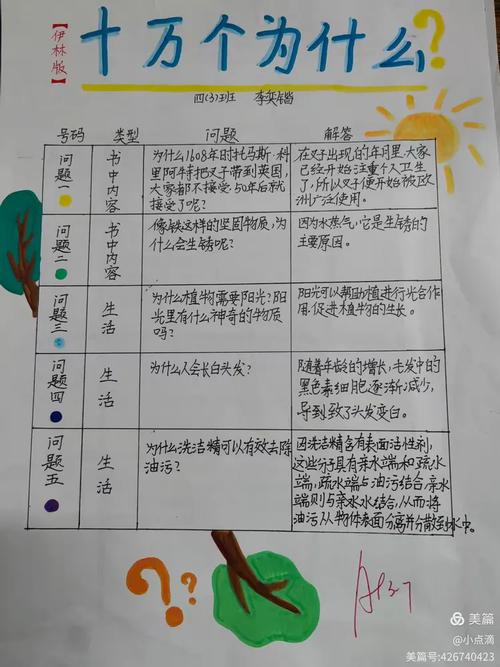 【伊林版】
十万个为什么?
四(3)班 李奕锴
号码 类型 问题 解答
问题一
书中内容
为什么1608年时托马斯·科
里阿特把叉子带到英国,
大家都不接受,50年后就
接受了呢?
在叉子出现的年月里,大家
已经开始注重个人卫生
了,所以叉子便开始被欧
洲广泛使用。
问题二
书中内容
像铁这样的坚固物质,为
什么会生锈呢?
因为水蒸气,它是生锈的
主要原因。
问题三
生活
为什么植物需要阳光?阳
光里有什么神奇的物质
吗?
阳光可以帮助植进行光合作
用,促进植物的生长。
问题四
生活
为什么人会长白头发?
随着年龄的增长,毛发中的
黑色素细胞逐渐减少,
导到致了头发变白。
问题五
生活
为什么洗洁精可以有效去除
油污?
因洗洁精含有表面活性剂,
这些分子具有亲水端和疏水
端,疏水端与油污结合,亲水
端则与亲水水结合,从而将
油污从物体表面分离并分散到水中。
??
美篇
@小点滴
美篇号:426740423